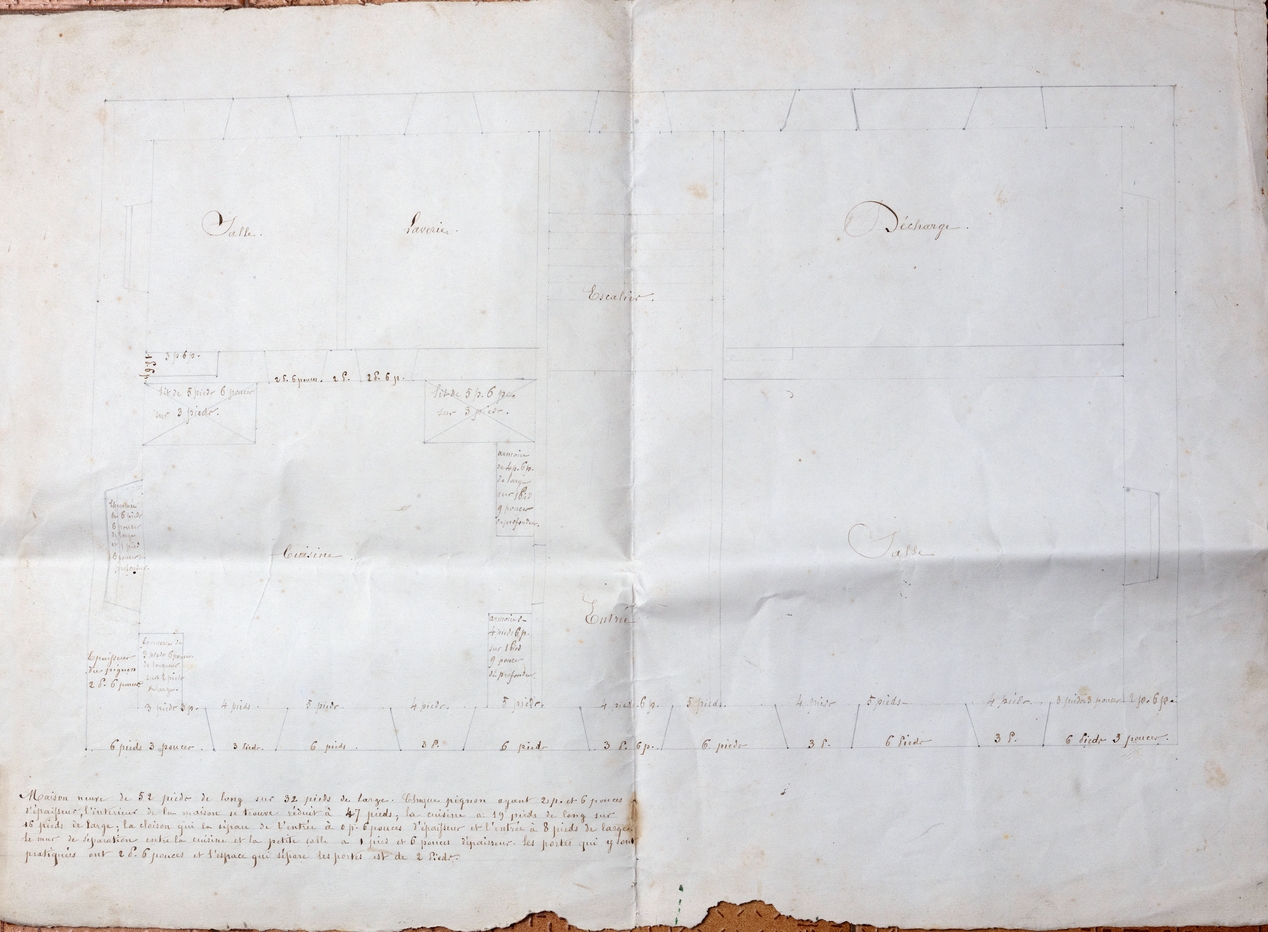 Salle.
Laverie.
Décharge.
Escalier.
3 p. 6 p.
2 P. 6 pouces. 2 P. 2 P. 6 p.
lit de 5 pieds 6 pouces
sur 3 pieds.
lit de 5 p. 6 po.
sur 3 pieds.
armoire
de 4 p. 6 p.
de large
sur 1 Pied
9 pouces
de profondeur.
6 pieds
6 pouces
de large
Cuisine
Salle
Entrée
armoire
4 pieds 6 p.
sur 1 Pied
9 pouces
de profondeur.
3 pieds 6 pouces
de longueur
sur 2 pieds
Epaisseur
du pignon
2 P. 6 pouces
3 pieds 3 p. 4 pieds. 5 pieds. 4 pieds. 5 pieds. 4 pieds 6 p. 5 pieds. 4 pieds 5 pieds 4 pieds. 3 pieds 3 pouces 2 p. 6 p.
6 pieds 3 pouces 3 Pieds. 6 pieds 3 P. 6 pieds 3 P. 6 p. 6 pieds 3 P. 6 Pieds 3 P. 6 Pieds 3 pouces.
Maison neuve de 52 pieds de long sur 32 pieds de large. Chaque pignon ayant 2 p. et 6 pouces
d'épaisseur, l'intérieur de la maison se trouve réduit à 47 pieds; la cuisine a 19 pieds de long sur
16 pieds de large; la cloison qui la sépare de l'entrée à 0 p. 6 pouces d'épaisseur et l'entrée à 8 pieds de large
le mur de séparation entre la cuisine et la petite salle a 1 pied et 6 pouces d'épaisseur. Les portes qui y sont
pratiquées ont 2 P. 6 pouces et l'espace qui sépare les portes est de 2 Pieds.